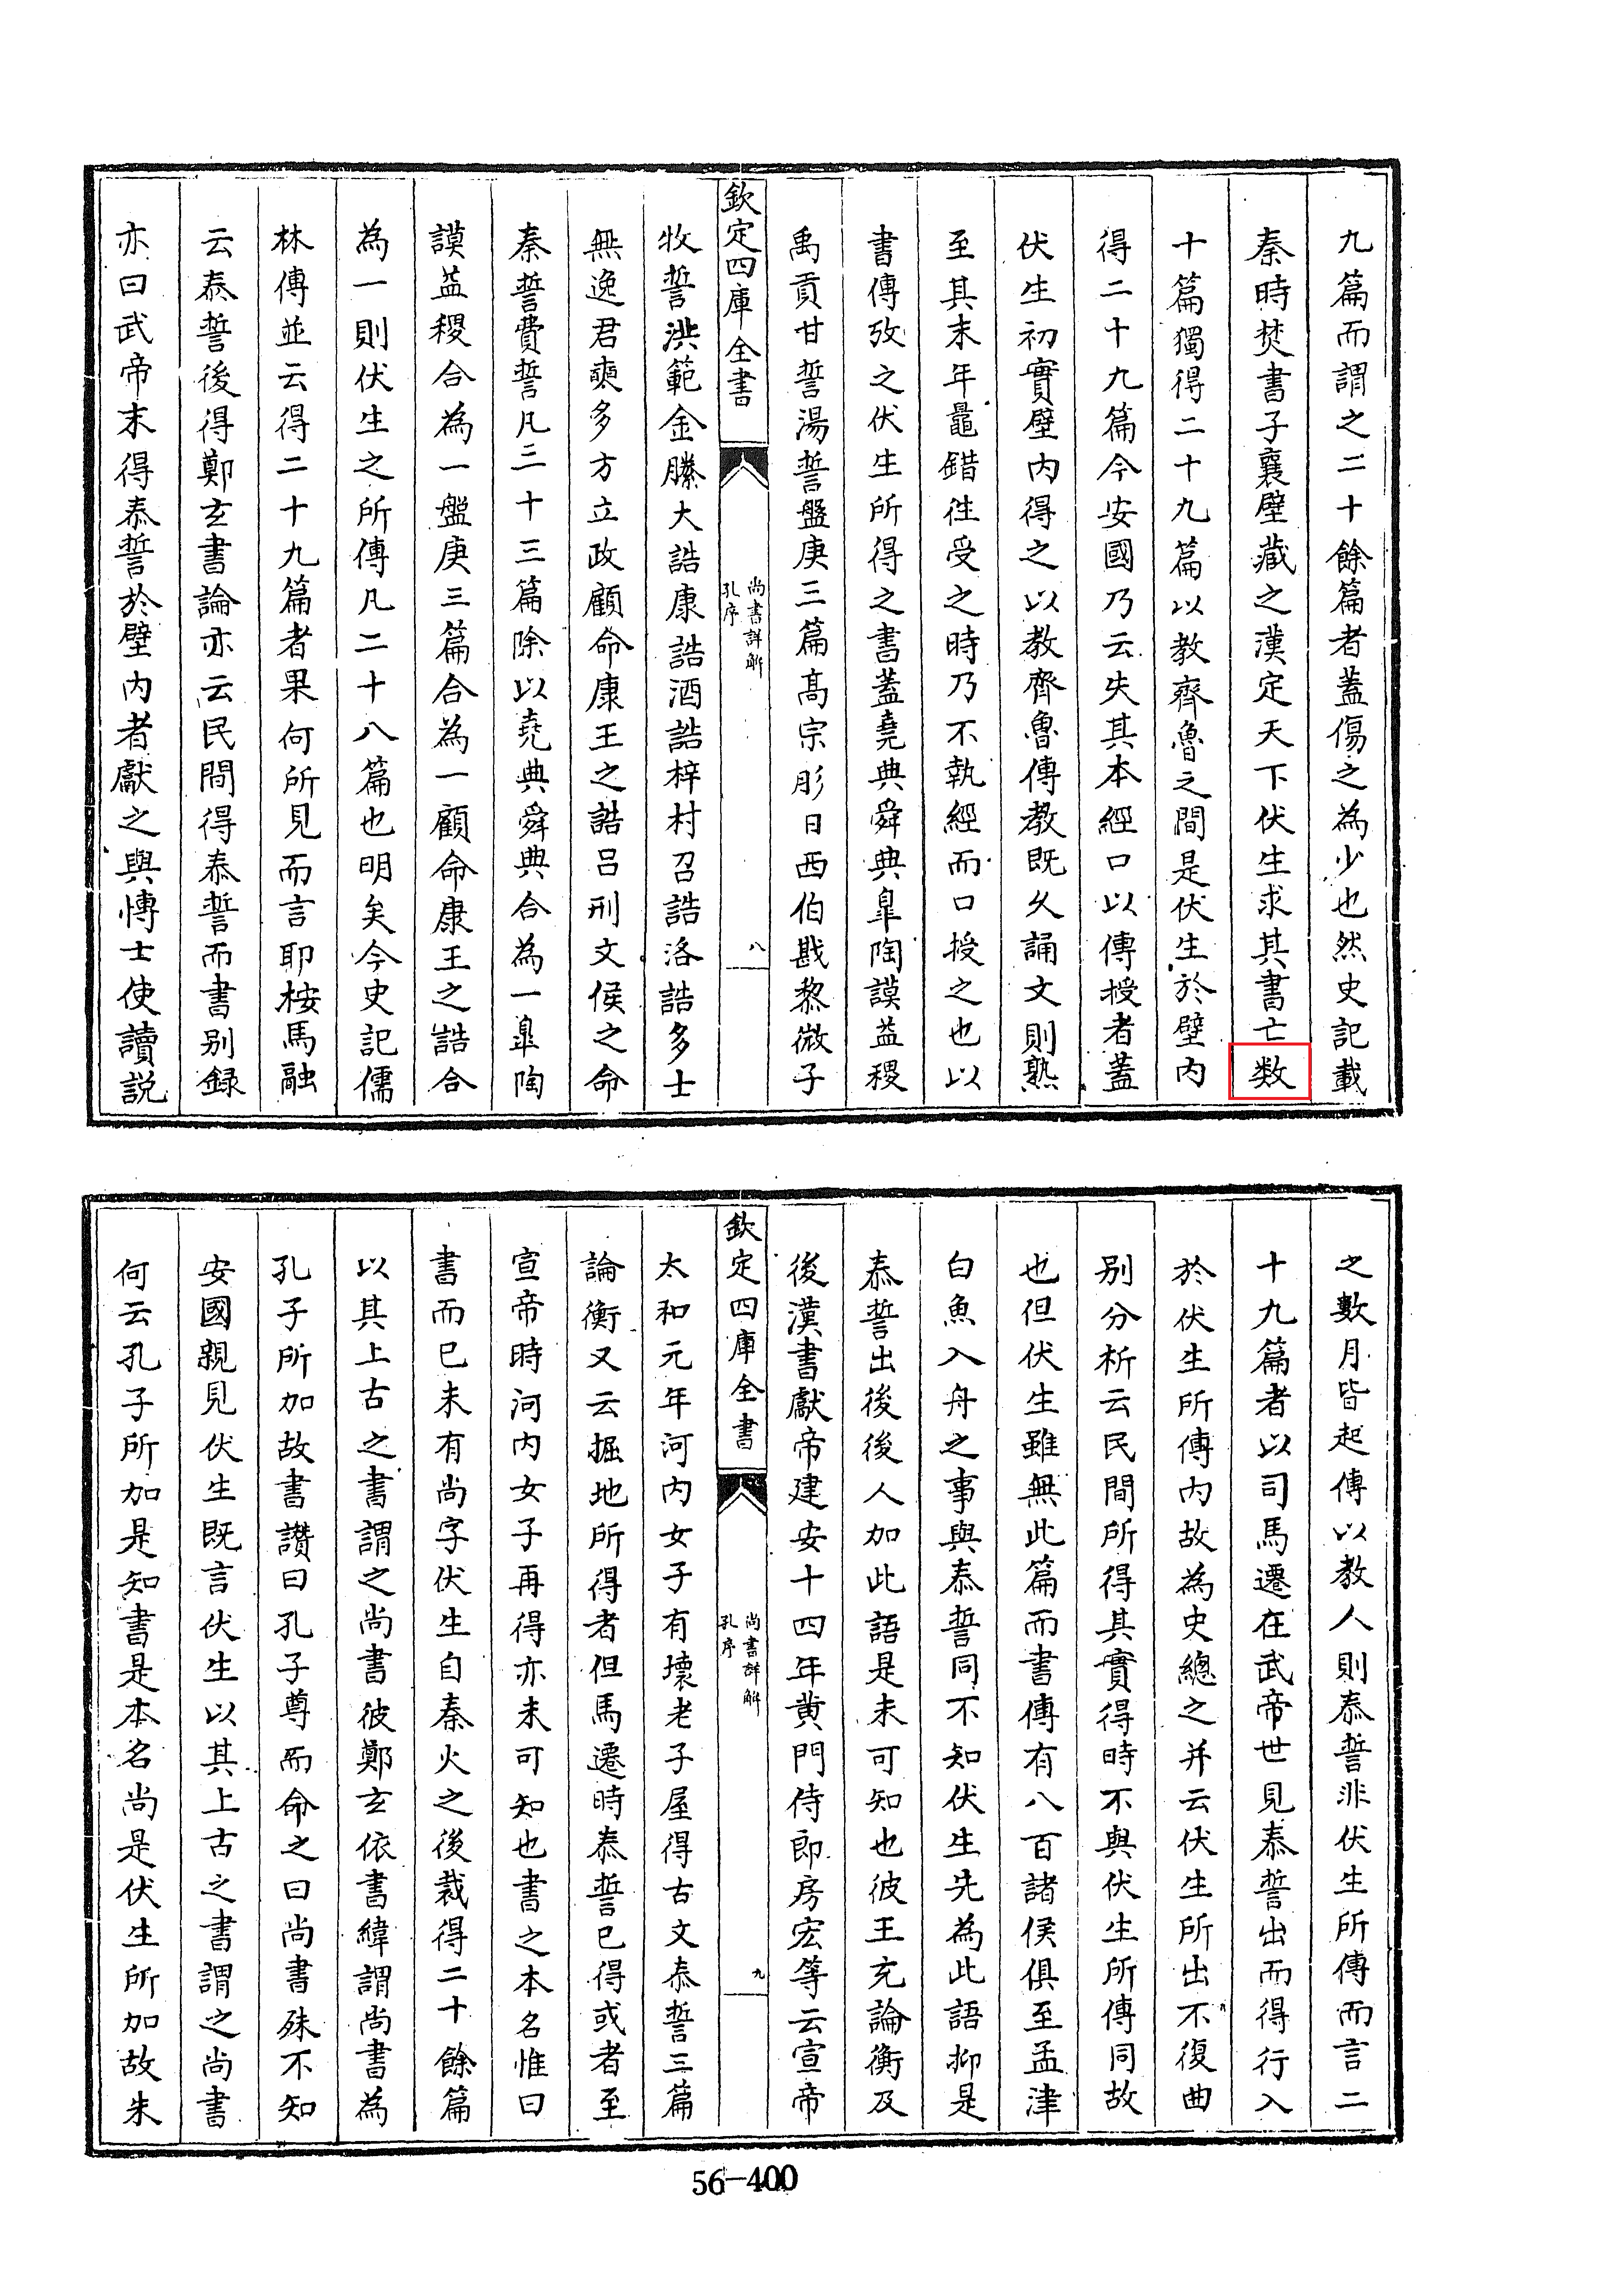 九篇而謂之二十餘篇者蓋傷之為少也然史記載
秦時焚書子襄壁藏之漢定天下伏生求其書亡数
十篇獨得二十九篇以教齊魯之間是伏生於壁内
得二十九篇今安國乃云失其本經口以傳授者蓋
伏生初實壁内得之以教齊魯傳教既久誦文則熟
至其末年鼂錯徃受之時乃不執經而口授之也以
書傳攷之伏生所得之書蓋堯典舜典臯陶謨益稷
禹貢甘誓湯誓盤庚三篇高宗肜日西伯戡黎微子
欽定四庫全書
尚書詳解
孔序
八
牧誓洪範金縢大誥康誥酒誥梓材召誥洛誥多士
無逸君奭多方立政顧命康王之誥呂刑文侯之命
秦誓費誓凡三十三篇除以堯典舜典合為一臯陶
謨益稷合為一盤庚三篇合為一顧命康王之誥合
為一則伏生之所傳凡二十八篇也明矣今史記儒
林傳並云得二十九篇者果何所見而言耶桉馬融
云泰誓後得鄭玄書論亦云民間得泰誓而書别録
亦曰武帝末得泰誓於壁内者獻之與博士使讀説
之數月皆起傳以教人則泰誓非伏生所傳而言二
十九篇者以司馬遷在武帝世見泰誓出而得行入
於伏生所傳内故為史總之并云伏生所出不復曲
别分析云民間所得其實得時不與伏生所傳同故
也但伏生雖無此篇而書傳有八百諸侯俱至孟津
白魚入舟之事與泰誓同不知伏生先為此語抑是
泰誓出後後人加此語是未可知也彼王充論衡及
後漢書獻帝建安十四年黄門侍郎房宏等云宣帝
欽定四庫全書
尚書詳解
孔序
九
太和元年河内女子有壞老子屋得古文泰誓三篇
論衡又云掘地所得者但馬遷時泰誓已得或者至
宣帝時河内女子再得亦未可知也書之本名惟曰
書而已未有尚字伏生自秦火之後裁得二十餘篇
以其上古之書謂之尚書彼鄭玄依書緯謂尚書為
孔子所加故書讚曰孔子尊而命之曰尚書殊不知
安國親見伏生既言伏生以其上古之書謂之尚書
何云孔子所加是知書是本名尚是伏生所加故朱
56-400